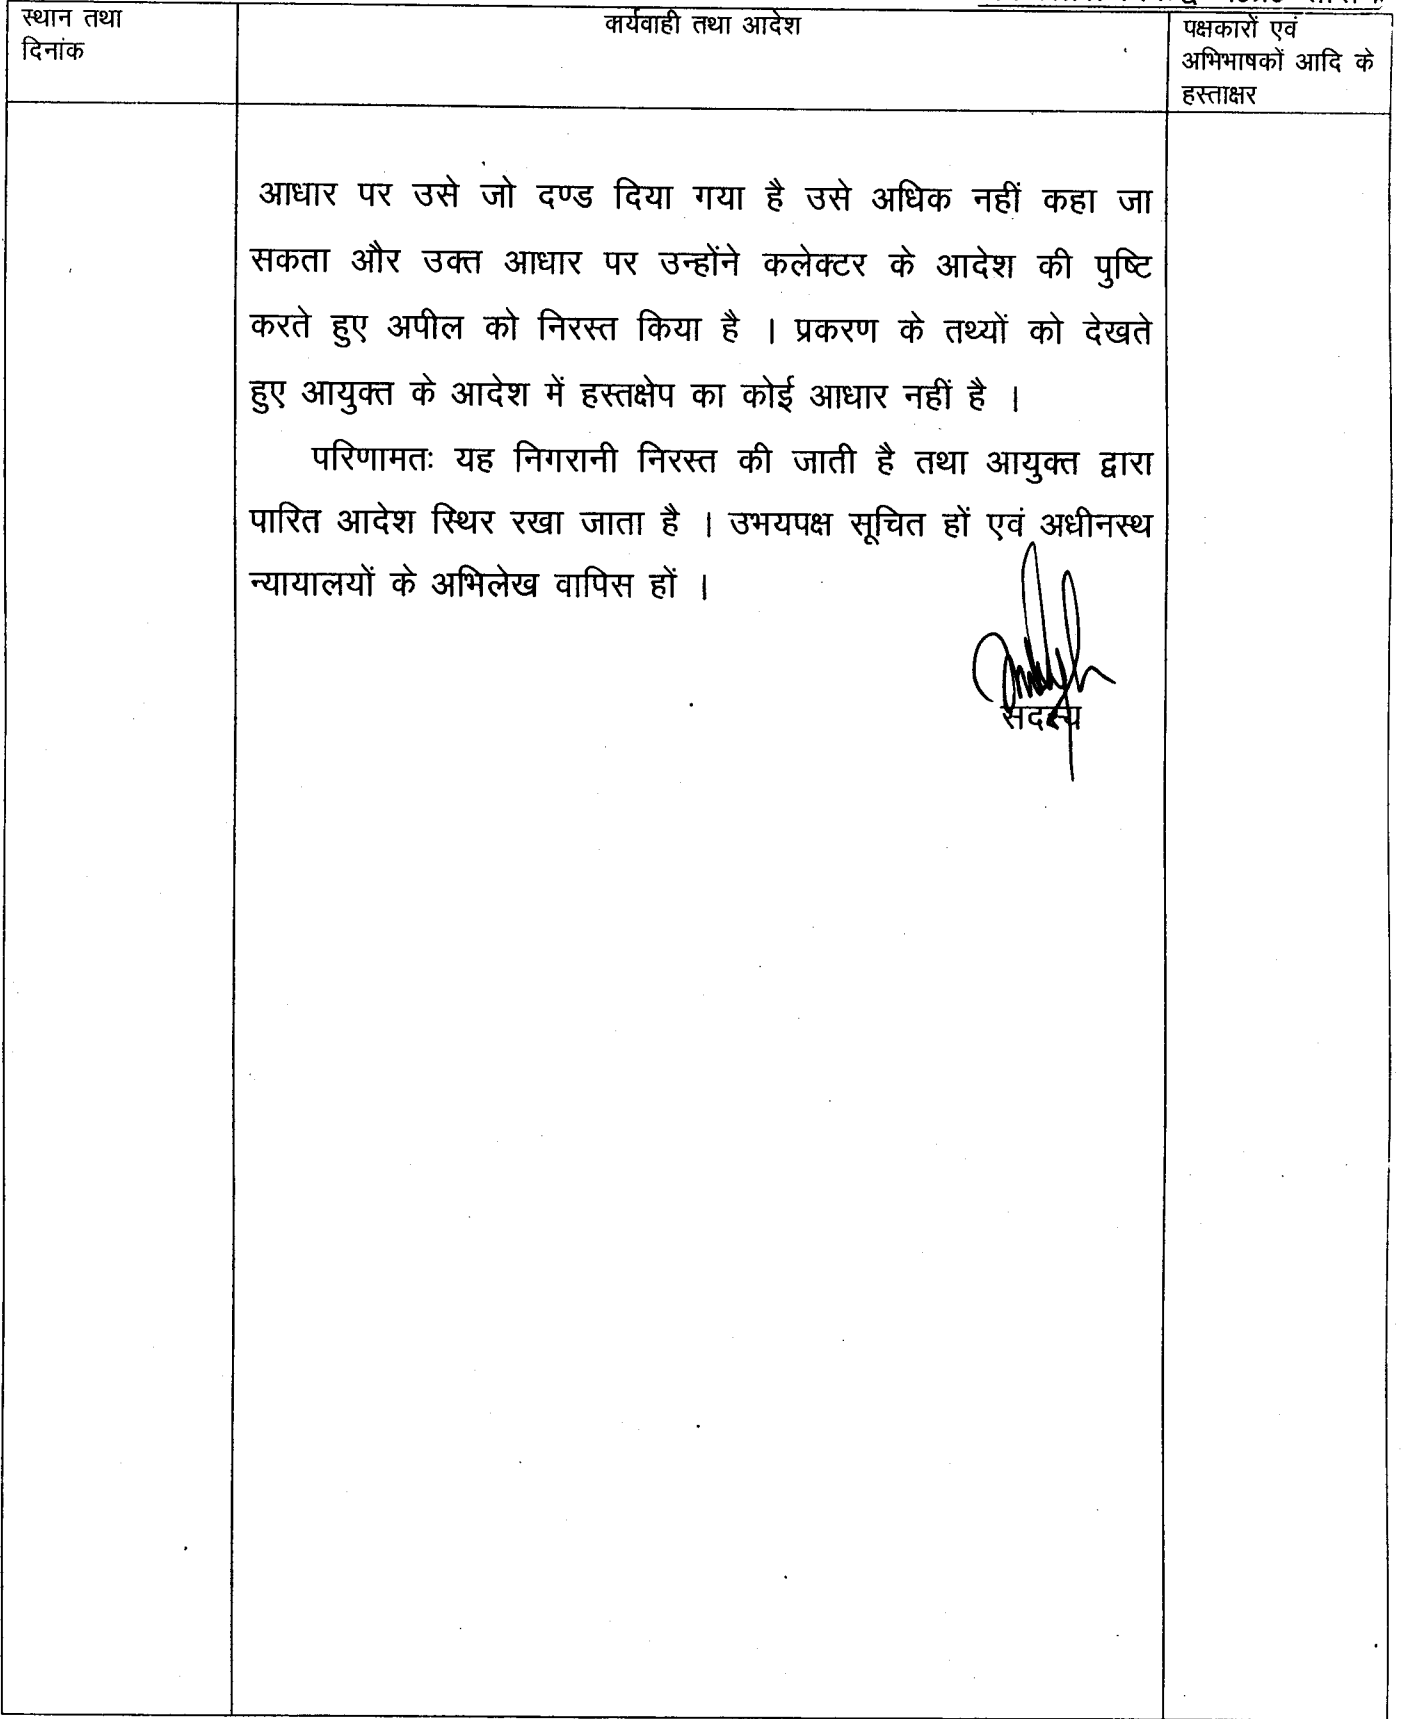 स्थान तथा
दिनांक
कार्यवाही तथा आदेश
पक्षकारों एवं
अभिभाषकों आदि के
हस्ताक्षर
आधार पर उसे जो दण्ड दिया गया है उसे अधिक नहीं कहा जा
सकता और उक्त आधार पर उन्होंने कलेक्टर के आदेश की पुष्टि
करते हुए अपील को निरस्त किया है ।  प्रकरण के तथ्यों को देखते
हुए आयुक्त के आदेश में हस्तक्षेप का कोई आधार नहीं है ।
परिणामतः यह निगरानी निरस्त की जाती है तथा आयुक्त द्वारा
पारित आदेश स्थिर रखा जाता है । उभयपक्ष सूचित हों एवं अधीनस्थ
न्यायालयों के अभिलेख वापिस हों ।
सदस्य